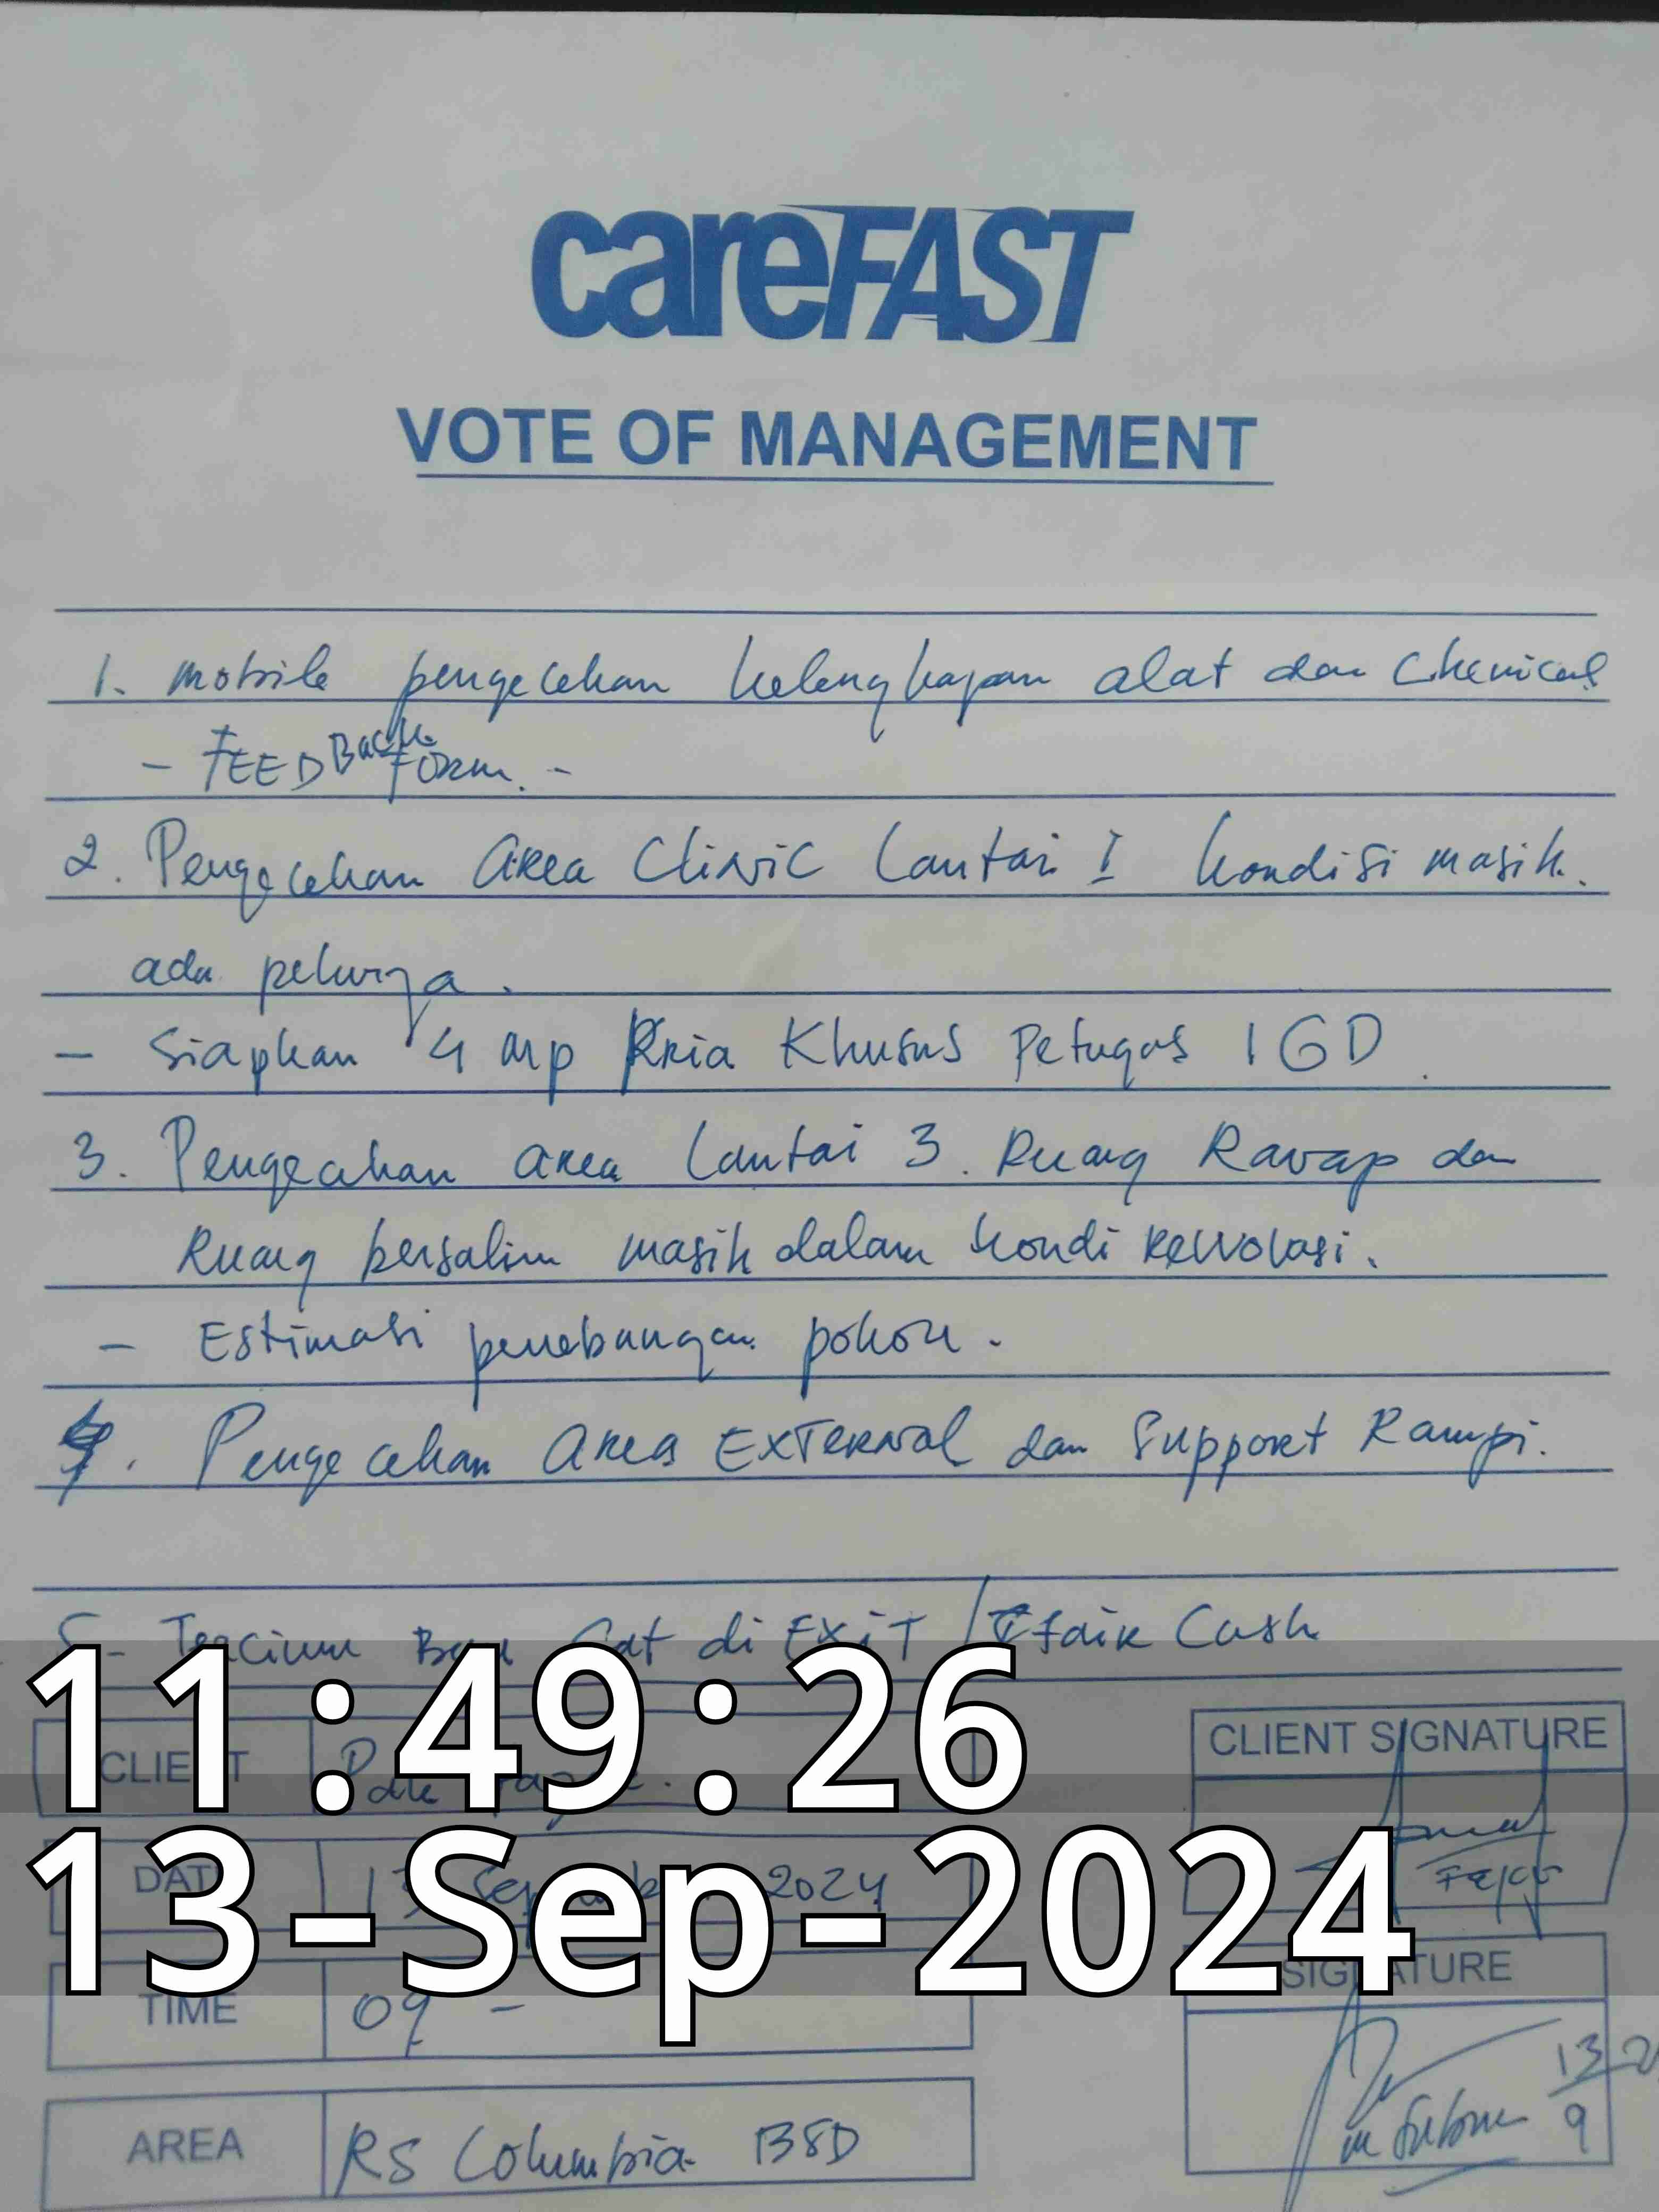 careFAST
VOTE OF MANAGEMENT
1. mobile pengecekan kelengkapan alat dan Chemical
- FEEDBack Form. -
2. Pengecekan Area Clinic Lantai I kondisi masih.
ada pekerja.
- Siapkan 4 mp Pria Khusus Petugas IGD.
3. Pengecekan area Lantai 3. Ruang Ranap dan
Ruang bersalin masih dalam kondi renovasi.
- Estimasi penebangan pohon.
4. Pengecekan Area External dan Support Rampi.
5 - Tercium Bau Cat di Exit / Cash
11:49:26
CLIENT Pak
CLIENT SIGNATURE
13-Sep-2024
DATE 13 September 2024
Fajar
TIME 09 -
SIGNATURE
13/9
AREA RS Columbia BSD